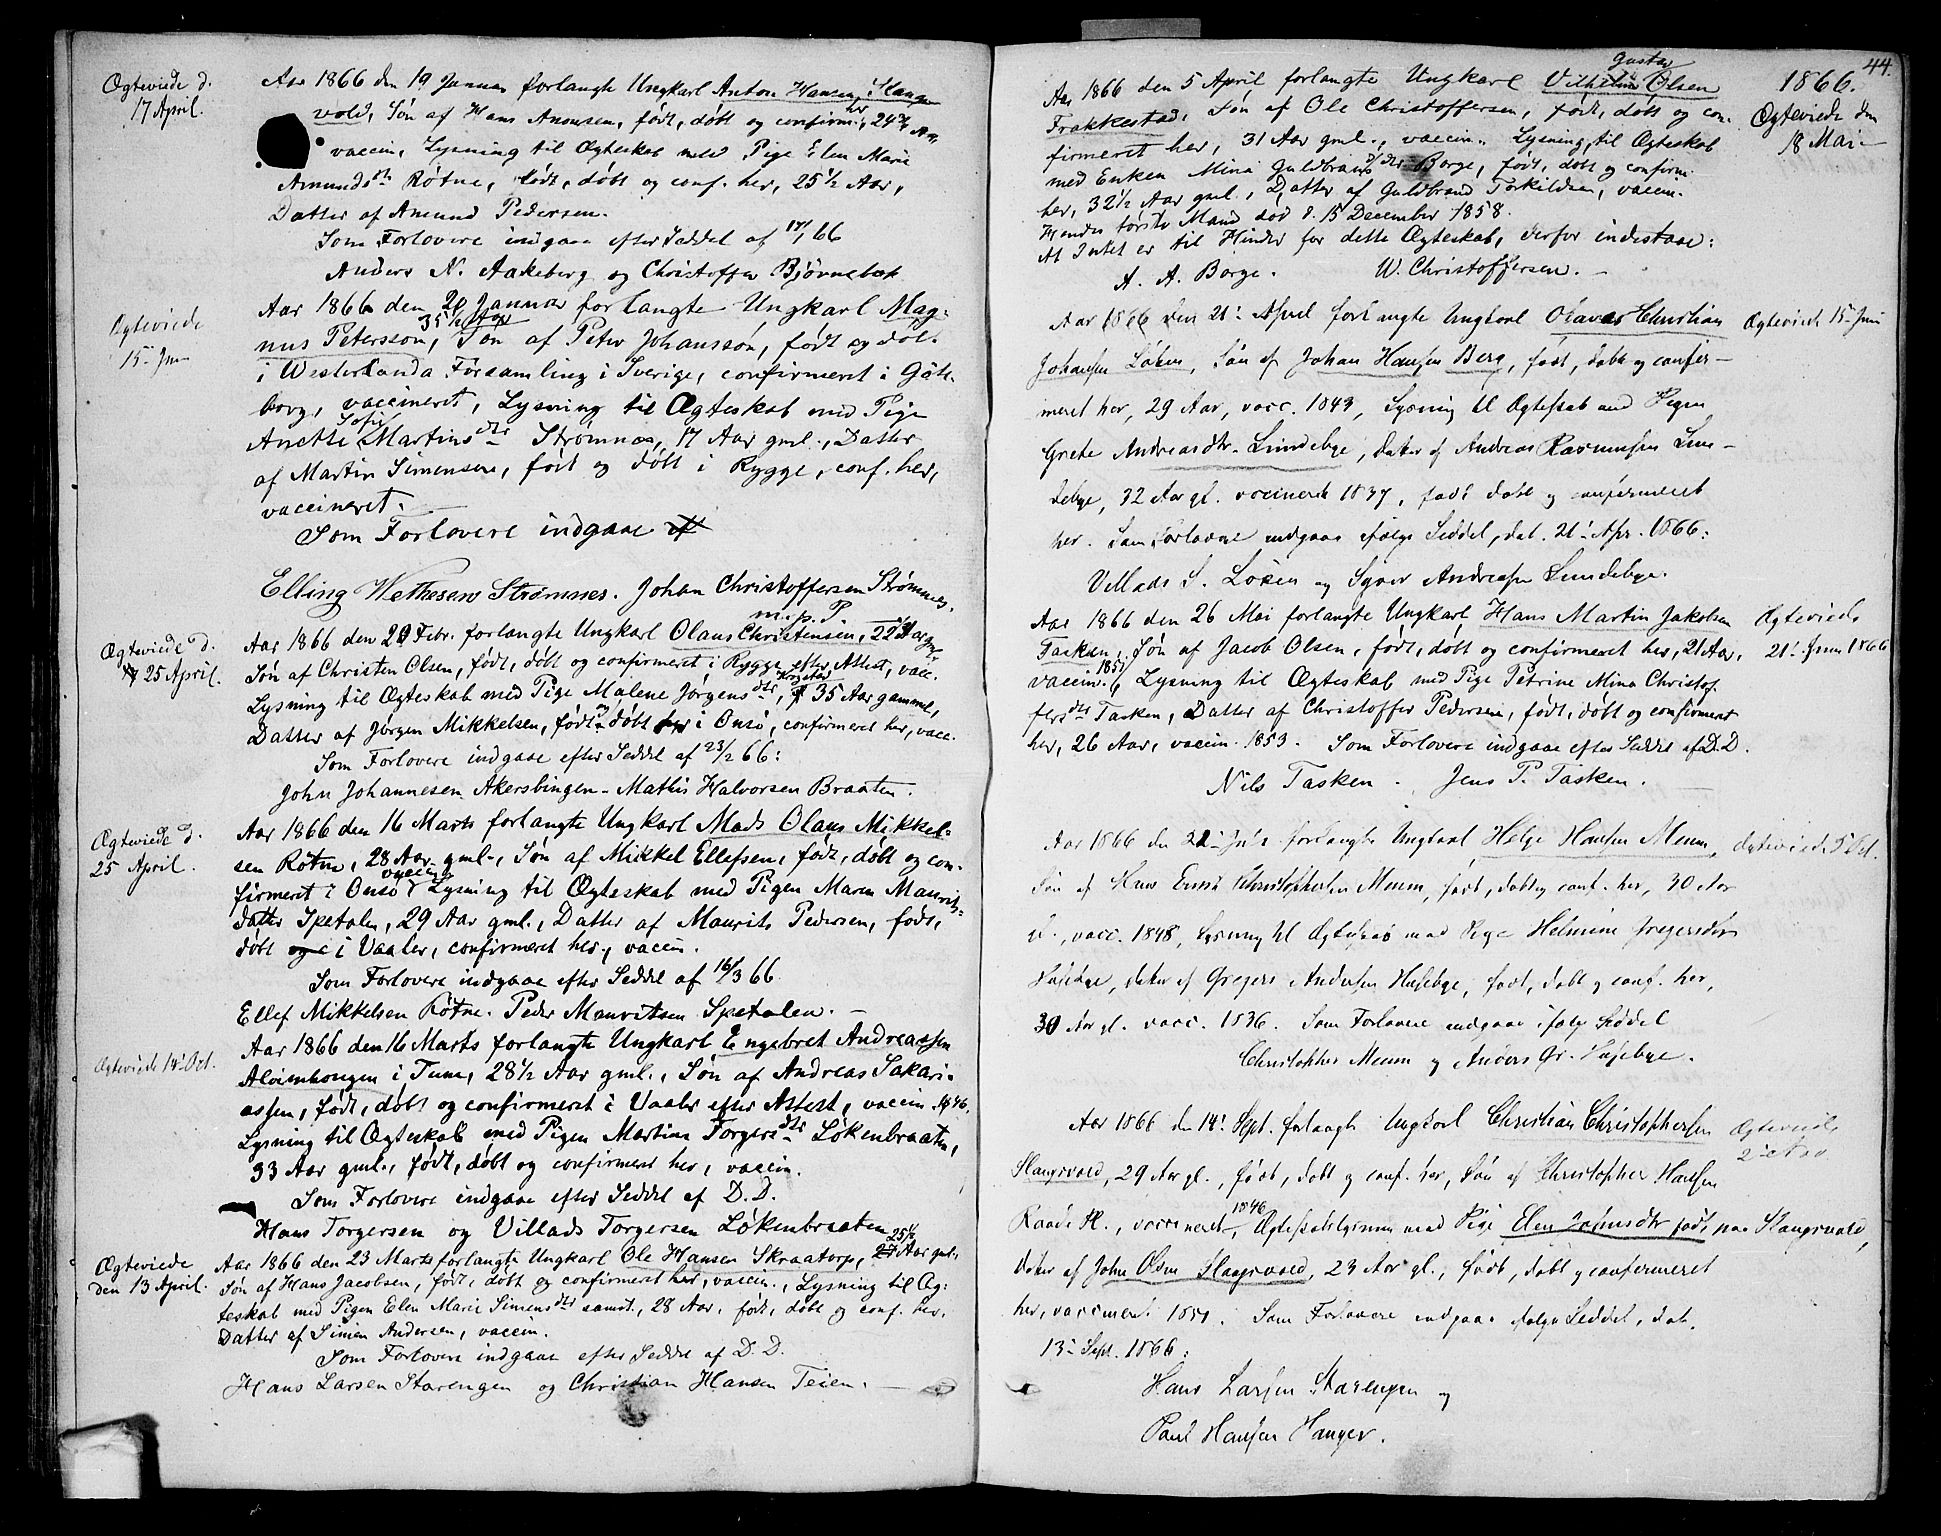 Ægteviede d.
17 April.
Aar 1866 den 19 Januar forlangte Ungkarl Anton Hansen, Haugs
vold, Søn af Hans Amonsen, født, døbt og confirm. her, 24 3/4 Aar,
vaccin, Lysning til Ægteskab med Pige Elen Marie
Amundsdtr Røtne, født, døbt og conf. her, 25 1/2 Aar,
Datter af Amund Pedersen.
Som Forlovere indgaae efter Seddel af 17/1 66
Anders N. Aakeberg og Christoffer Bjørnebæk
Ægteviede
15 Juni
Aar 1866 den 20 Januar forlangte Ungkarl Mag-
nus Petersson, 35 1/2 Aar, Søn af Peter Johansson, født og døbt
i Westerlanda Församling i Sverige, confirmeret i Göte-
borg, vaccineret, Lysning til Ægteskab med Pige
Anette Sofie Martinsdtr Strømnæs, 17 Aar gml., Datter
af Martin Simensen, født og døbt i Rygge, conf. her,
vaccineret.
Som Forlovere indgaae
Elling Wethesen Strømnes. Johan Christoffersen Strømnes.
m. p. P.
Ægteviede d.
25 April.
Aar 1866 den 20 Febr. forlangte Ungkarl Olaus Christensen, 22 Aar gml.
Søn af Christen Olsen, født, døbt og confirmeret i Rygge efter Attest, vacc.
Lysning til Ægteskab med Pige Malene Jørgensdtr, 35 Aar gammel,
Datter af Jørgen Mikkelsen, født og døbt i Onsø, confirmeret her, vacc.
Som Forlovere indgaae efter Seddel af 23/2 66:
John Johannesen Akersbingen - Mathis Halvorsen Braaten.
Ægteviede d.
25 April.
Aar 1866 den 16 Marts forlangte Ungkarl Mads Olaus Mikkel-
sen Røtne, 28 Aar gml., Søn af Mikkel Ellefsen, født, døbt og con-
firmeret i Onsø, vaccin, Lysning til Ægteskab med Pigen Maren Maurits-
datter Spetalen, 29 Aar gml., Datter af Maurits Pedersen, født,
døbt og c i Vaaler, confirmeret her, vaccin.
Som Forlovere indgaae efter Seddel af 16/3 66
Ellef Mikkelsen Røtne. Peder Mauritsen Spetalen.
Ægteviede 14 Oct.
Aar 1866 den 16 Marts forlangte Ungkarl Engebret Andreassen
Alvimhougen i Tune, 28 1/2 Aar gml., Søn af Andreas Sakari-
assen, født, døbt og confirmeret i Vaaler efter Attest, vaccin. 1846.
Lysning til Ægteskab med Pigen Martine Torgersdtr Løkenbraaten,
33 Aar gml., født, døbt og confirmeret her, vaccin.
Som Forlovere indgaae efter Seddel af D. D.
Hans Torgersen og Villads Torgersen Løkenbraaten
Ægteviede
den 13 April.
Aar 1866 den 23 Marts forlangte Ungkarl Ole Hansen Skraatorp, 25 1/2 Aar gml.,
Søn af Hans Jacobsen, født, døbt og confirmeret her, vaccin., Lysning til Æg-
teskab med Pigen Elen Marie Simensdtr samst., 28 Aar, født, døbt og conf. her.
Datter af Simen Andersen, vaccin.
Som Forlovere indgaae efter Seddel af D. D.
Hans Larsen Starengen og Christian Hansen Teien.
44.
1866.
Ægteviede den
18 Mai
Aar 1866 den 5 April forlangte Ungkarl Gustav Vilhelm Olsen
Frakkestad, Søn af Ole Christoffersen, født, døbt og con-
firmeret her, 31 Aar gml., vaccin. Lysning til Ægteskab
med Enken Mina Guldbrandsdtr Borge, født, døbt og confirm.
her, 32 1/2 Aar gml., Datter af Guldbrand Torkildsen, vaccin.
Hendes første Mand død d. 15 December 1858.
At Intet er til Hinder for dette Ægteskab, derfor indestaae:
A. A. Borge. W. Christoffersen.
Ægteviede 15 Juni
Aar 1866 den 21 April forlangte Ungkarl Olaves Christian
Johansen Løken, Søn af Johan Hansen Berg, født, døbt og confir-
meret her, 29 Aar, vacc. 1843, Lysning til Ægteskab med Pigen
Grete Andreasdtr. Lundebye, Datter af Andreas Rasmussen Lun-
debye, 32 Aar gl. vaccineret 1837, født døbt og confirmeret
her. Som Forlovere indgaae ifølge Seddel, dat. 21 Apr. 1866:
Villads S. Løken og Syver Andreasen Lundebye.
Ægteviede
21 Juni 1866
Aar 1866 den 26 Mai forlangte Ungkarl Hans Martin Jakobsen
Tasken, Søn af Jacob Olsen, født, døbt og confirmeret her, 21 Aar,
vaccin. Lysning til Ægteskab med Pige Petrine Mina Christof-
fersdtr Tasken, Datter af Christoffer Pedersen, født, døbt og confirmeret
her, 26 Aar, vaccin. 1853. Som Forlovere indgaae efter Seddel af D. D.
Nils Tasken. Jens P. Tasken.
Ægteviede 5 Oct.
Aar 1866 den forlangte Ungkarl Helge Hansen Meum,
Søn af Hans Christophersen Meum, født, døbt og conf. her, 30 Aar
gl., vacc. 1848, Lysning til Ægteskab med Pige Helmine Gregersdtr
Husebye, datter af Gregers Andersen Husebye, født, døbt og conf. her,
30 Aar gl. vacc. 1836. Som Forlovere indgaae ifølge Seddel
Christopher Meum og Anders Gr. Husebye.
Ægteviede
2 Nov
Aar 1866 den 14 Sept. forlangte Ungkarl Christian Christophersen
Haugsvold, 29 Aar gl., født, døbt og conf. her, Søn af Christopher Hansen
Raade Pl., vaccineret 1846, Ægteskabslysning med Pige Elen Johnsdtr født paa Haugsvold,
datter af John Olsen Haugsvold, 23 Aar gl., født, døbt og confirmeret
her, vaccineret 1851. Som Forlovere indgaae ifølge Seddel, dat.
13 Sept. 1866:
Hans Larsen Starengen og
Paul Hansen Hauger.